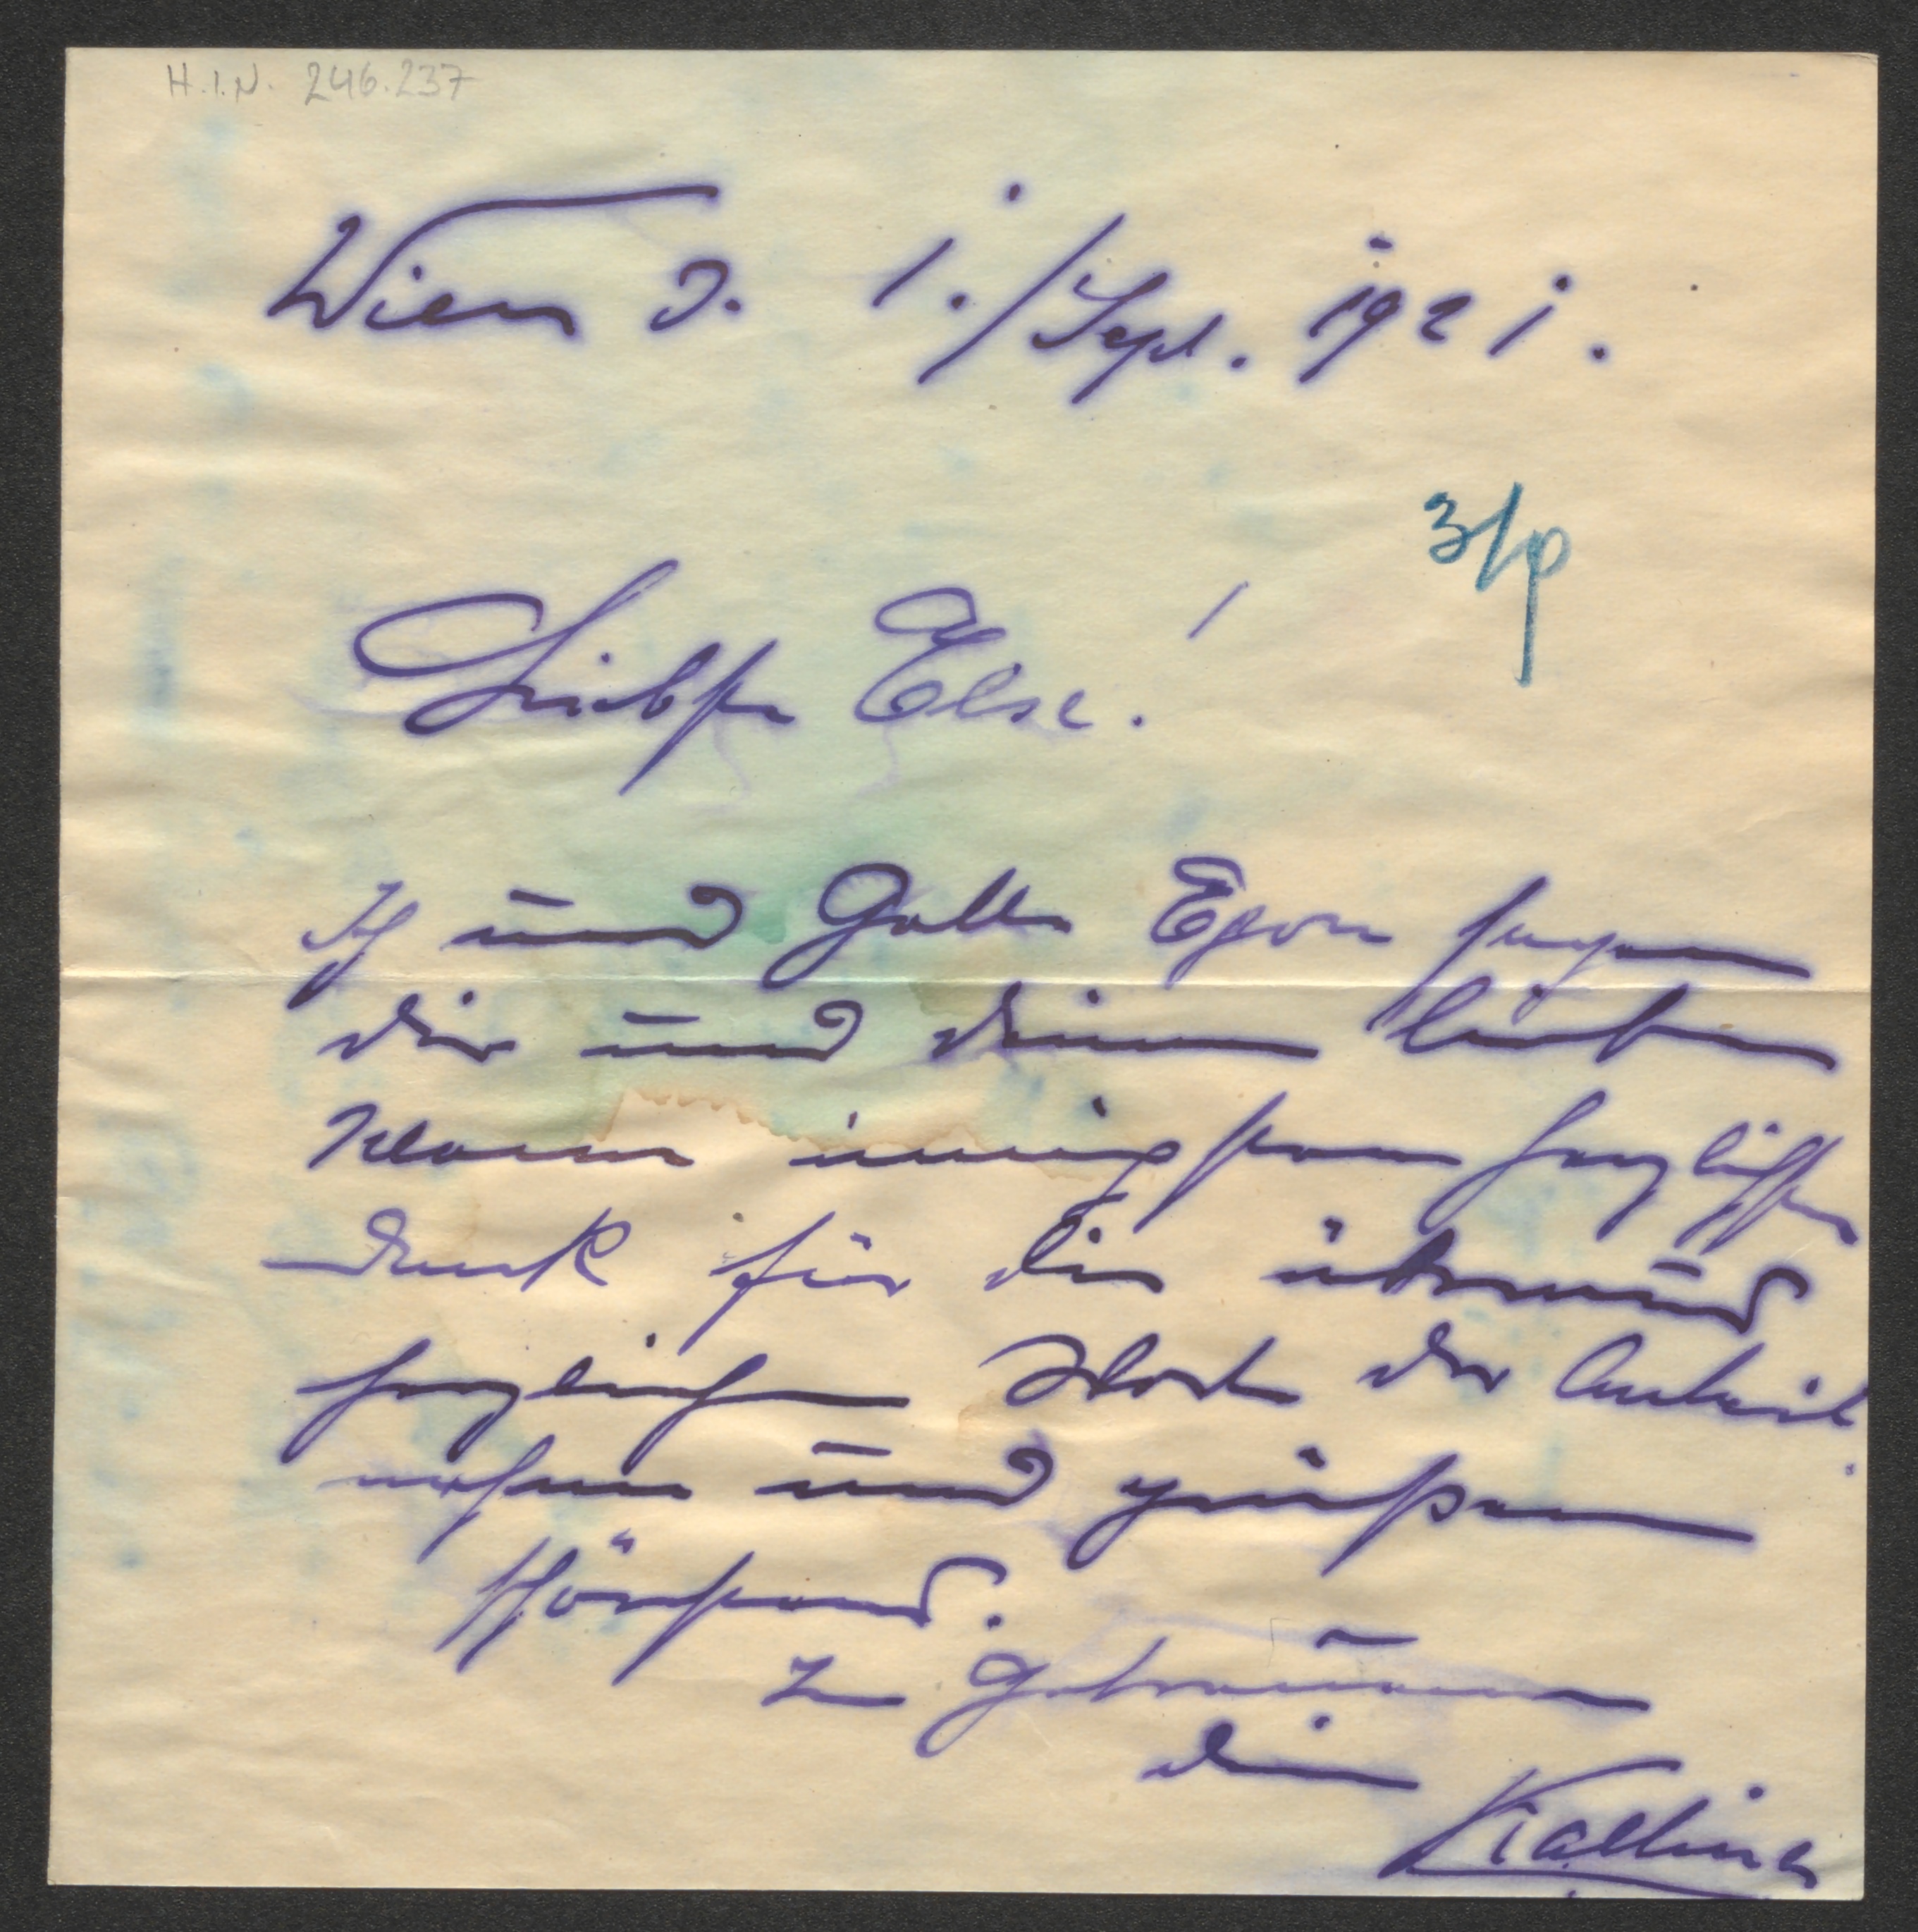 H.I.N. 246.237
Wien d. 1./Sept. 1921.
3/p
Liebste Else!
Ich und Gatte Egon sagen
dir und deinem lieben
Mann innigsten herzlichsten
Dank für die
herzlichen Worte der Anteil
nahme und grüßen
In Getreuem
dein